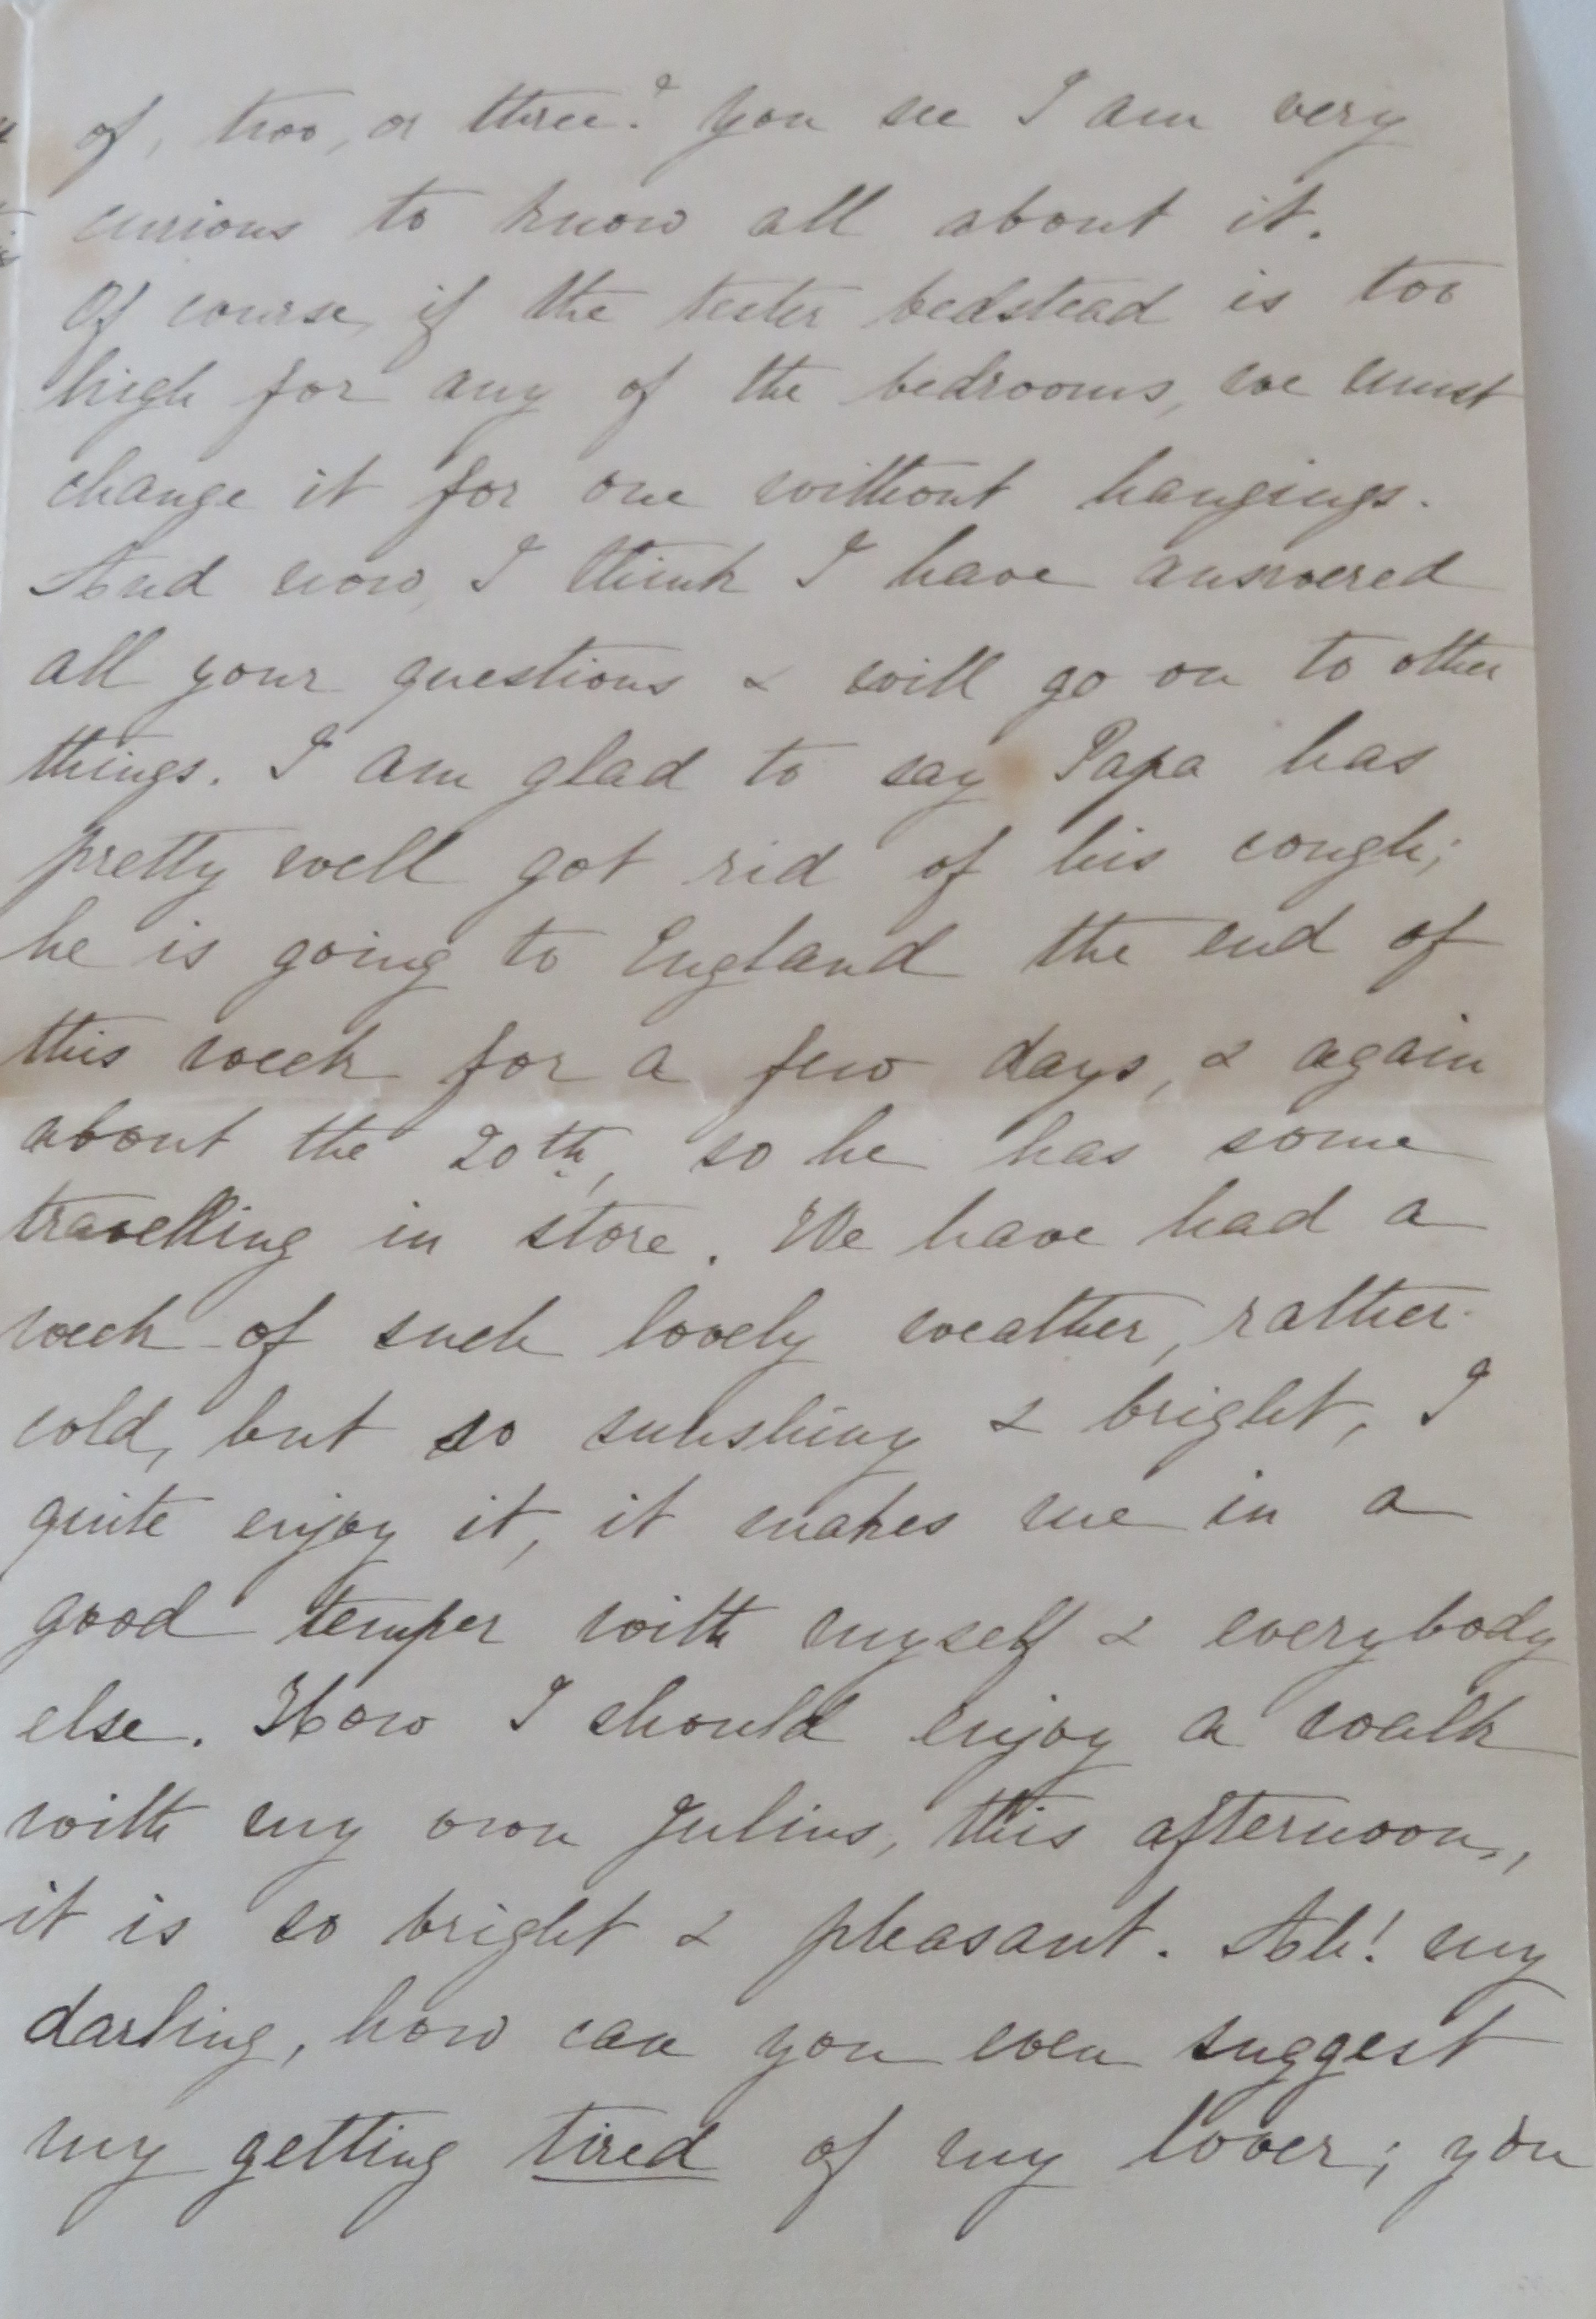 of, two, or three? You see I am very
curious to know all about it.
Of course, if the tester bedstead is too
high for any of the bedrooms, we must
change it for one without hangings.
And now, I think I have answered
all your questions & will go on to other
things. I am glad to say Papa has
pretty well got rid of his cough;
he is going to England the end of
this week for a few days, & again
about the 20th, so he has some
travelling in store. We have had a
week of such lovely weather, rather
cold, but so sunshiny & bright, I
quite enjoy it, it makes me in a
good temper with myself & everybody
else. How I should enjoy a walk
with my own Julius, this afternoon,
it is so bright & pleasant. Ah! my
darling, how can you even suggest
my getting tired of my lover; you